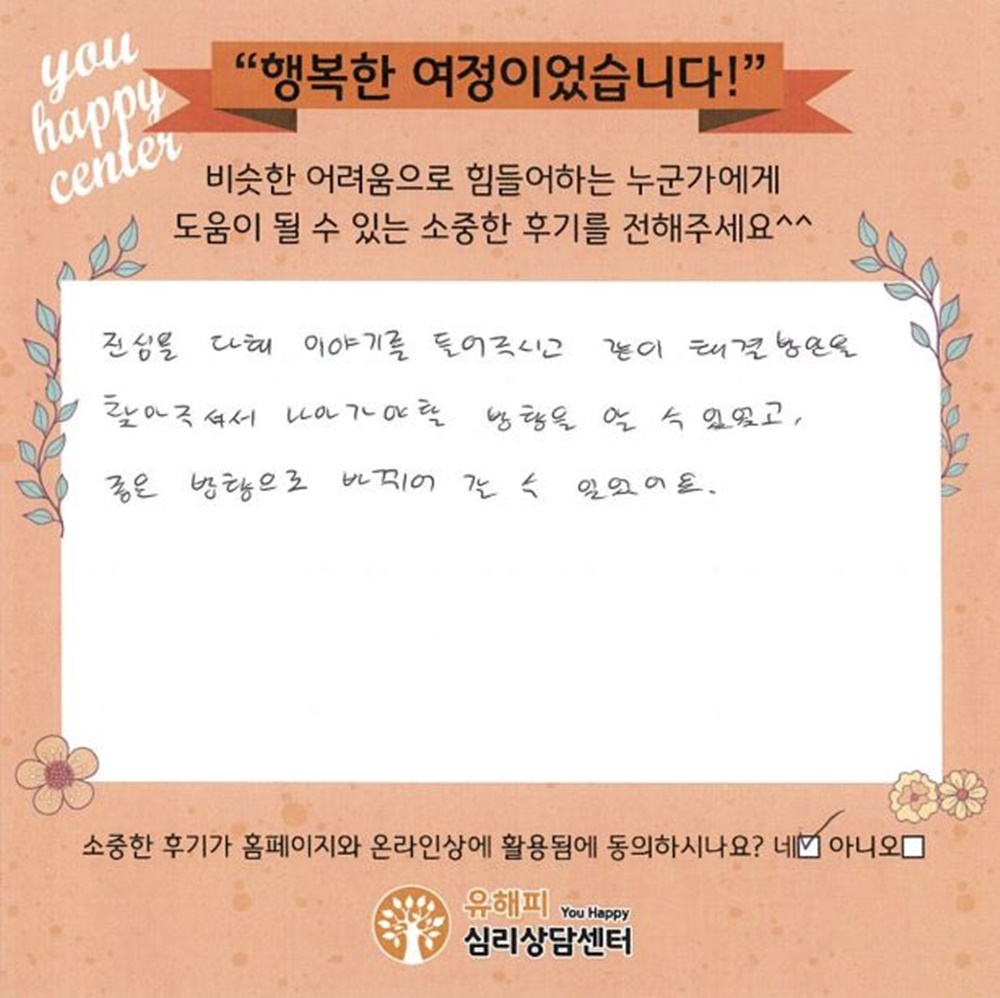 you
happy
center
“행복한 여정이었습니다!”
비슷한 어려움으로 힘들어하는 누군가에게
도움이 될 수 있는 소중한 후기를 전해주세요^^
진심을 다해 이야기를 들어주시고 같이 해결방안을
찾아주셔서 나아가야할 방향을 알 수 있었고,
좋은 방향으로 바뀌어 갈 수 있었어요.
소중한 후기가 홈페이지와 온라인상에 활용됨에 동의하시나요? 네☑ 아니오☐
유해피 You Happy
심리상담센터